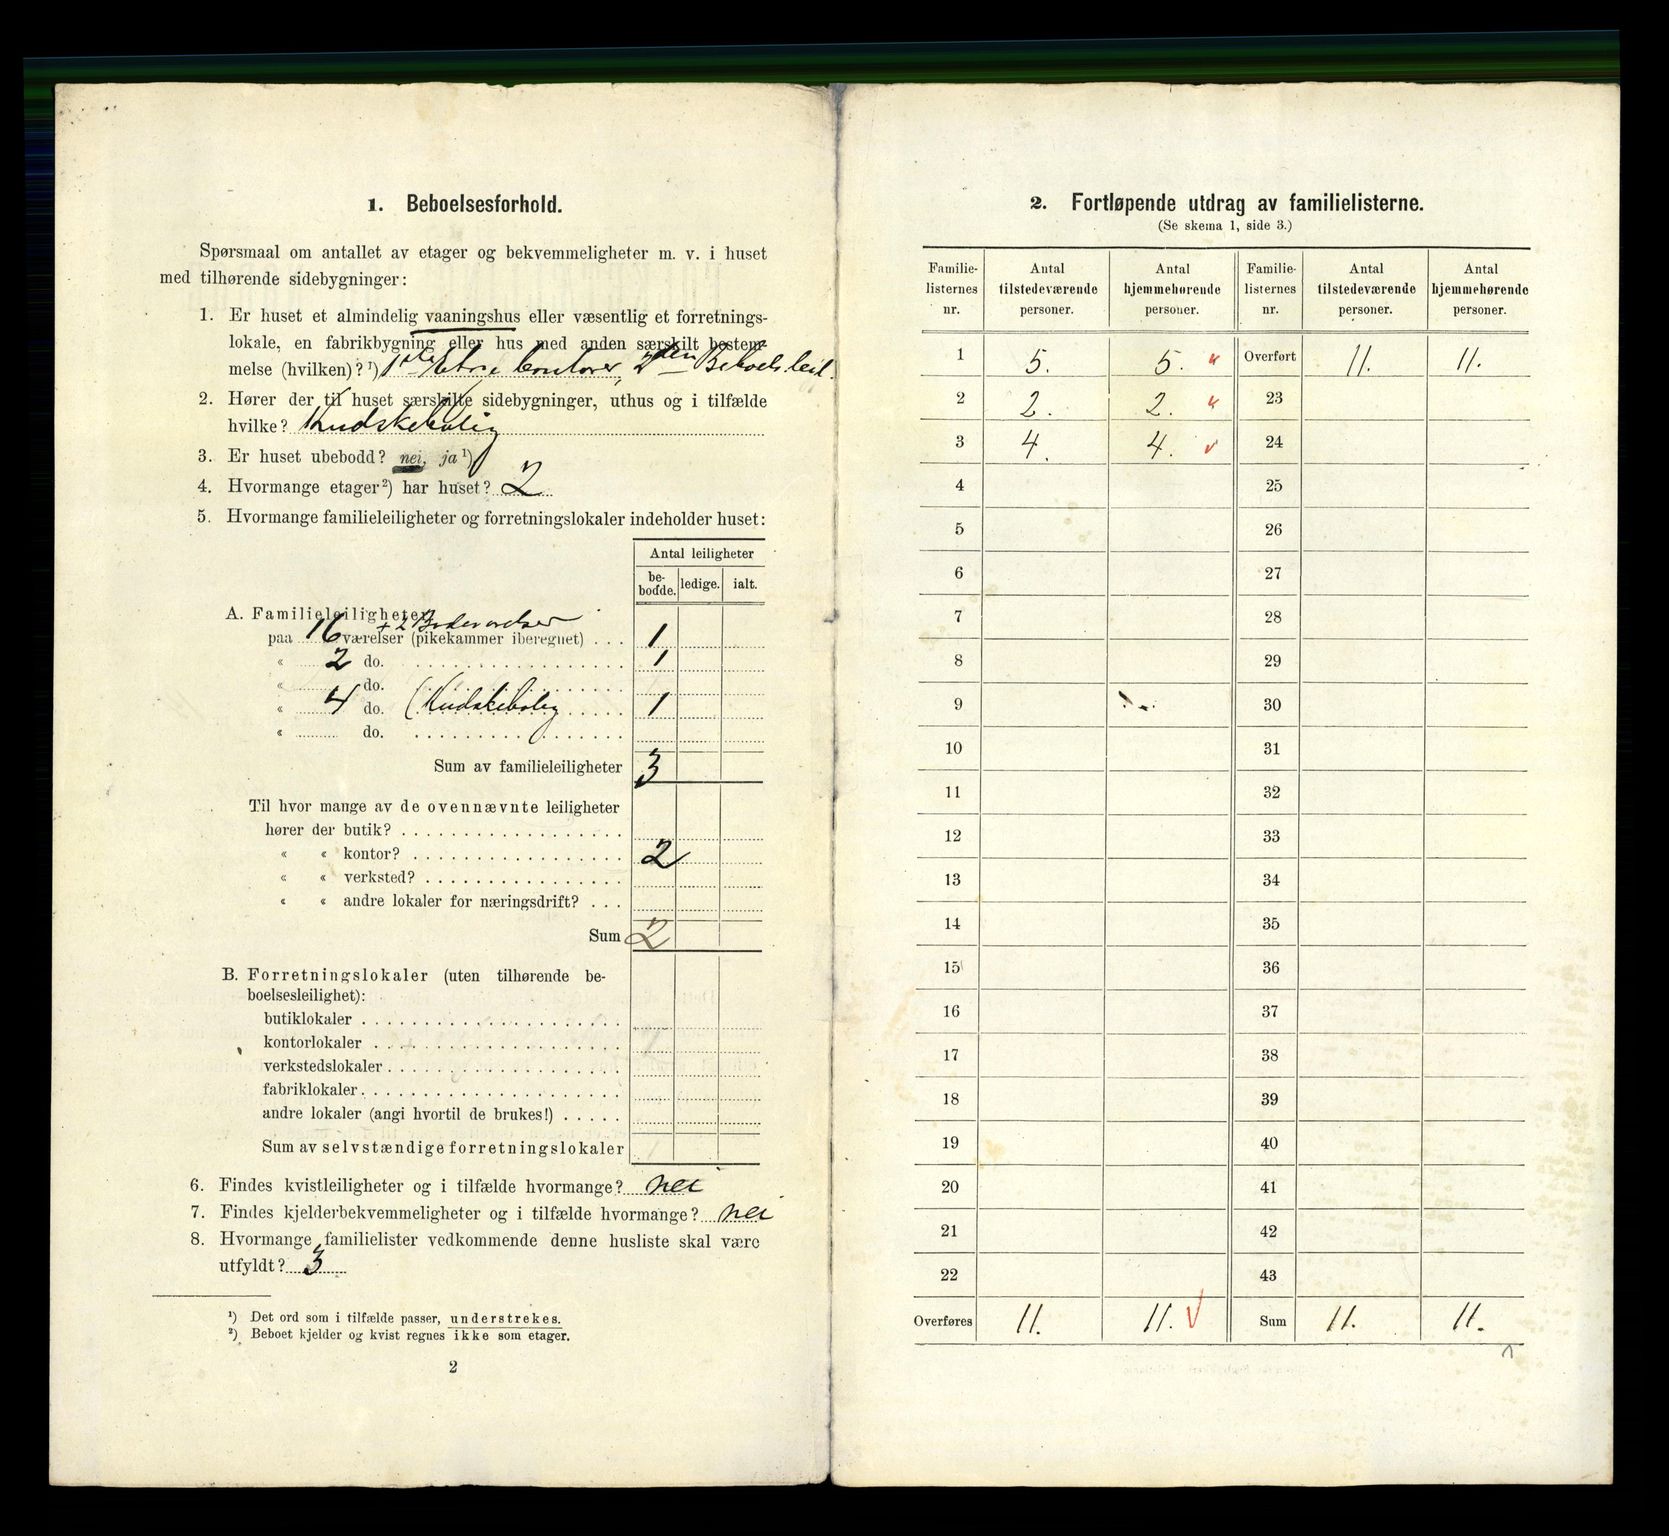 1. Beboelsesforhold.
Spørsmaal om antallet av etager og bekvemmeligheter m. v. i huset
med tilhørende sidebygninger:
1. Er huset et almindelig vaaningshus eller væsentlig et forretnings-
lokale, en fabrikbygning eller hus med anden særskilt bestem-
melse (hvilken)? ¹) 1ste Etage Contorer, 2den Beboelsleil.
2. Hører der til huset særskilte sidebygninger, uthus og i tilfælde
hvilke? Kudskebolig
3. Er huset ubebodd? nei, ja ¹)
4. Hvormange etager ²) har huset? 2
5. Hvormange familieleiligheter og forretningslokaler indeholder huset:
Antal leiligheter
be-bodde. ledige. ialt.
A. Familieleiligheter
paa 16 + 2 værelser (pikekammer iberegnet) . . . 1
« 2 do. 1
« do.
« 4 do. (Kudskebolig 1
« do.
Sum av familieleiligheter 3
Til hvor mange av de ovennævnte leiligheter
hører der butik?
« « kontor? 2
« « verksted?
« « andre lokaler for næringsdrift?
Sum 2
B. Forretningslokaler (uten tilhørende be-
boelsesleilighet):
butiklokaler
kontorlokaler
verkstedslokaler
fabriklokaler
andre lokaler (angi hvortil de brukes!)
Sum av selvstændige forretningslokaler
6. Findes kvistleiligheter og i tilfælde hvormange? nei
7. Findes kjelderbekvemmeligheter og i tilfælde hvormange? nei
8. Hvormange familielister vedkommende denne husliste skal være
utfyldt? 3
¹) Det ord som i tilfælde passer, understrekes.
²) Beboet kjelder og kvist regnes ikke som etager.
2
2. Fortløpende utdrag av familielisterne.
(Se skema 1, side 3.)
Familie-listernes nr. Antal tilstedeværende personer. Antal hjemmehørende personer. Familie-listernes nr. Antal tilstedeværende personer. Antal hjemmehørende personer.
1 5. 5. Overført 11. 11.
2 2. 2. 23
3 4. 4. 24
4 25
5 26
6 27
7 28
8 29
9 30
10 31
11 32
12 33
13 34
14 35
15 36
16 37
17 38
18 39
19 40
20 41
21 42
22 43
Overføres 11. 11. Sum 11. 11.